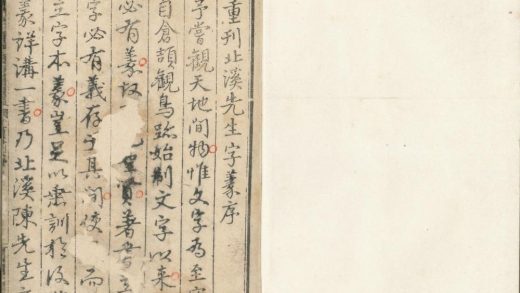 重刊北溪先生字義序
予嘗觀天地間物惟文字為至
自倉頡觀鳥跡始制文字以来
必有義故 聖賢著書立
字必有義存乎其間使 而
立字本義豈足以垂訓於後
義詳講一書乃北溪陳先生